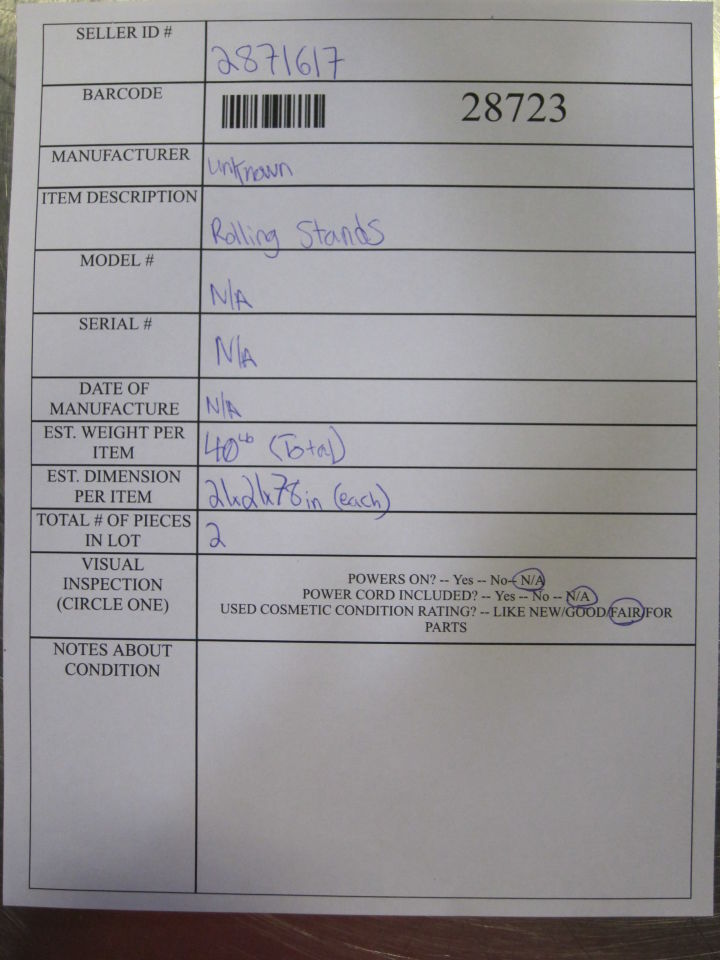 SELLER ID #
2871617
BARCODE
28723
MANUFACTURER
unknown
ITEM DESCRIPTION
Rolling Stands
MODEL #
N/A
SERIAL #
N/A
DATE OF
MANUFACTURE
N/A
EST. WEIGHT PER
ITEM
40 lb (Total)
EST. DIMENSION
PER ITEM
21x21x78in (each)
TOTAL # OF PIECES
IN LOT
2
VISUAL
INSPECTION
(CIRCLE ONE)
POWERS ON? -- Yes -- No-- N/A
POWER CORD INCLUDED? -- Yes -- No -- N/A
USED COSMETIC CONDITION RATING? -- LIKE NEW/GOOD/FAIR/FOR
PARTS
NOTES ABOUT
CONDITION